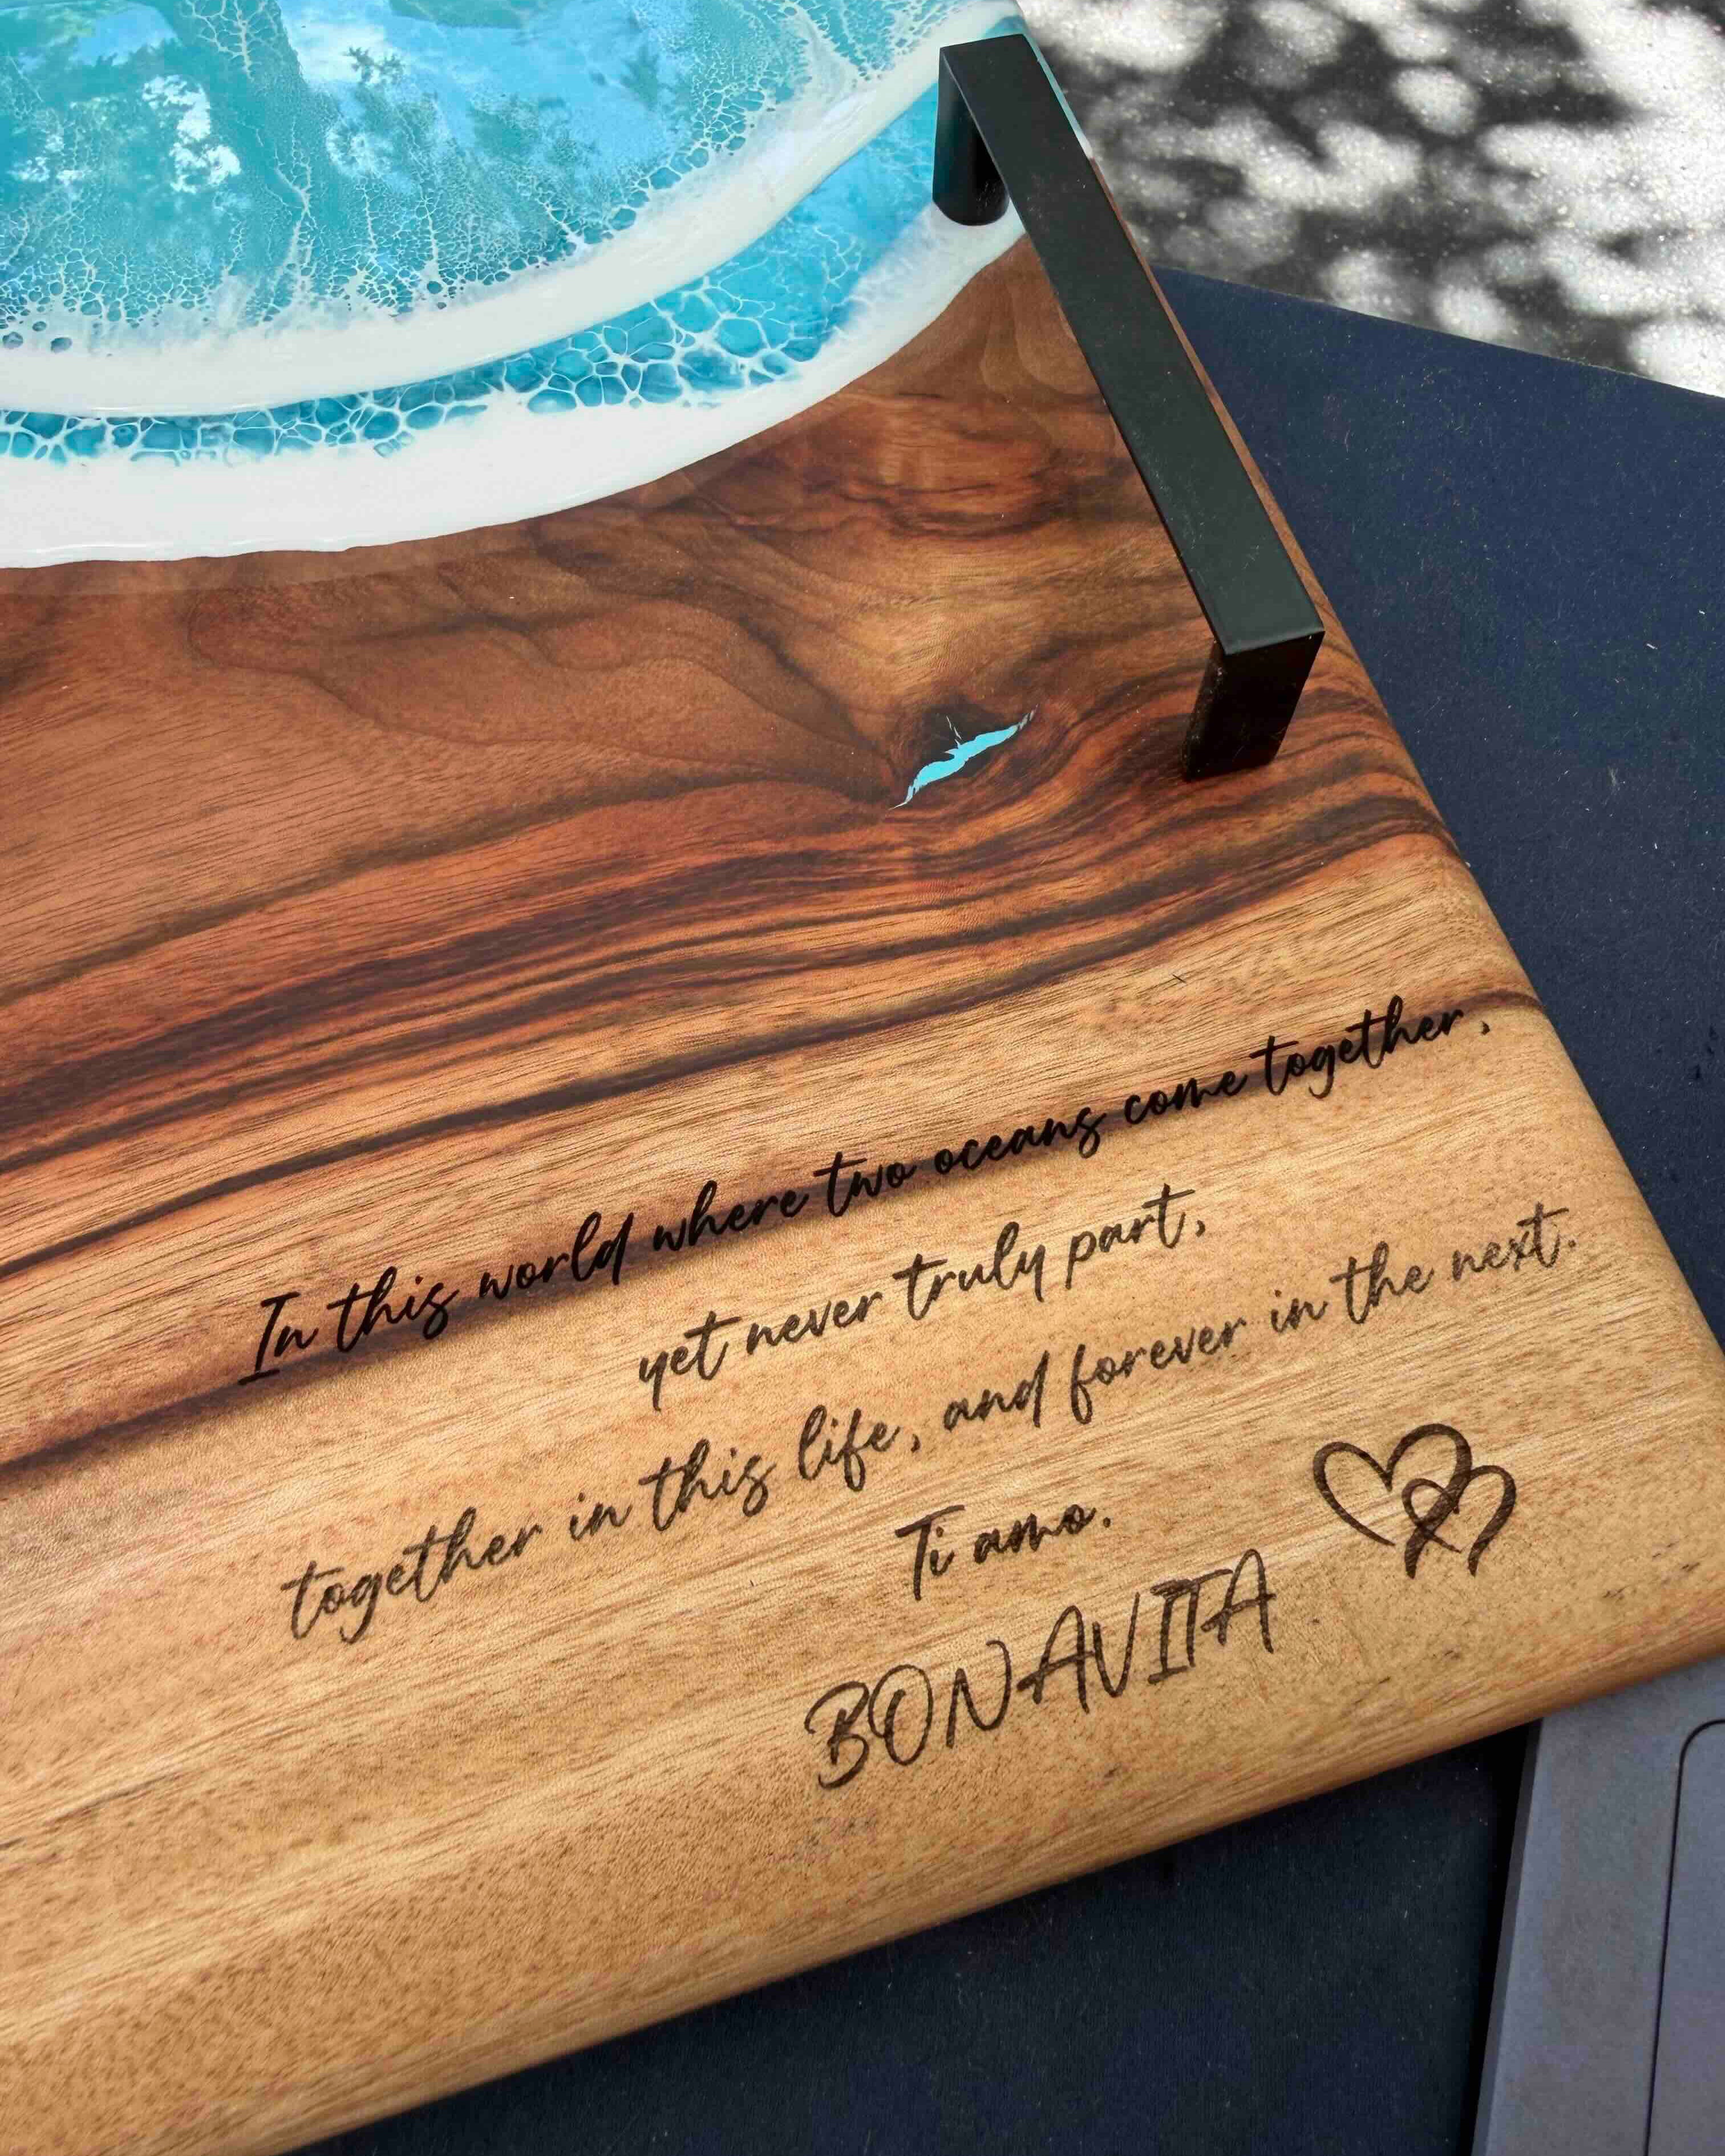 In this world where two oceans come together,
yet never truly part,
together in this life, and forever in the next.
Ti amo.
BONAVITA